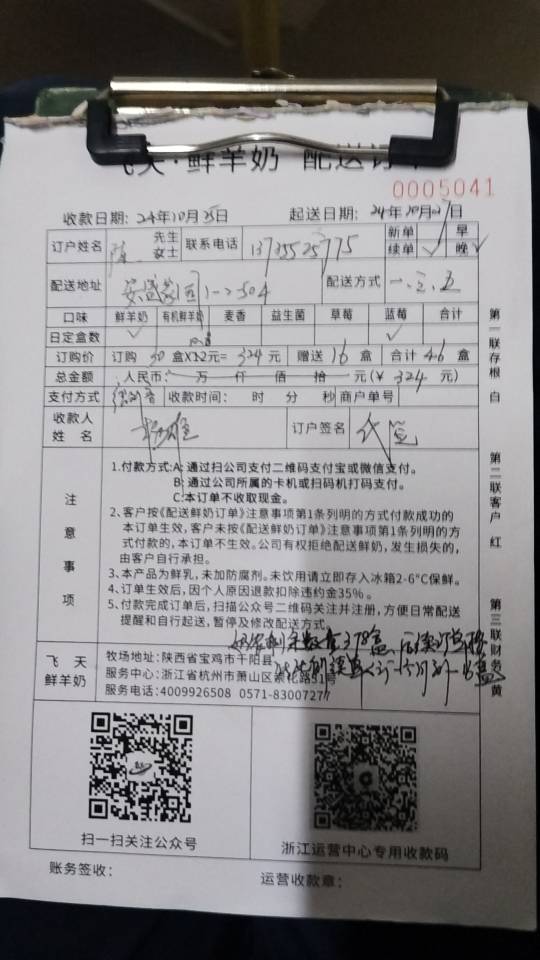 飞天·鲜羊奶 配送订单
0005041
收款日期: 24年10月25日 起送日期: 24年10月27日
订户姓名 陈 先生 女士 联系电话 13735525775 新单 续单 ✓ 早 晚 ✓
配送地址 安盛家园1-2504 配送方式 一、三、五
口味 鲜羊奶 有机鲜羊奶 麦香 益生菌 草莓 蓝莓 合计
日定盒数 ✓ ✓
订购价 订购 30 盒X12元= 324元 赠送 16 盒 合计 46 盒
总金额 人民币: 万 仟 佰 拾 元(¥ 324 元)
支付方式 收款时间: 时 分 秒 商户单号
收款人姓名 订户签名
注意事项
1.付款方式:A:通过扫公司支付二维码支付宝或微信支付。
B:通过公司所属的卡机或扫码机打码支付。
C:本订单不收取现金。
2.客户按《配送鲜奶订单》注意事项第1条列明的方式付款成功的
本订单生效,客户未按《配送鲜奶订单》注意事项第1条列明的方
式付款的,本订单不生效。公司有权拒绝配送鲜奶,发生损失的,
由客户自行承担。
3、本产品为鲜乳,未加防腐剂。未饮用请立即存入冰箱2-6°C保鲜。
4、订单生效后,因个人原因退款扣除违约金35%。
5、付款完成订单后,扫描公众号二维码关注并注册,方便日常配送
提醒和自行起送,暂停及修改配送方式。
飞天鲜羊奶
牧场地址:陕西省宝鸡市千阳县
服务中心:浙江省杭州市萧山区崇化路51号
服务电话:4009926508 0571-83007277
扫一扫关注公众号
浙江运营中心专用收款码
账务签收: 运营收款章:
第一联存根 白
第二联客户 红
第三联财务 黄